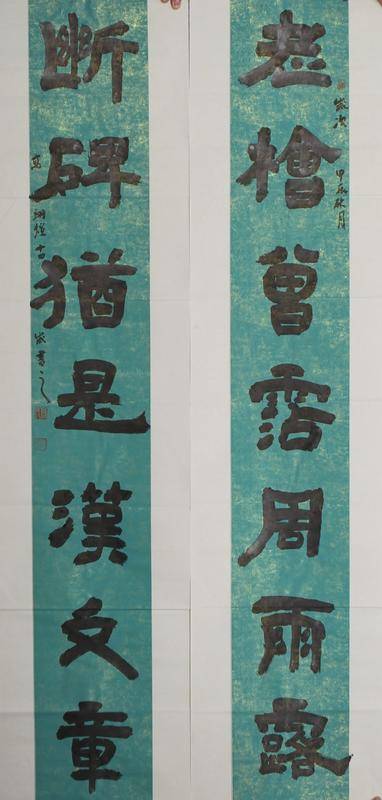 老檜曾霑周雨露
歲次甲辰秋月
斷碑猶是漢文章
歲書之